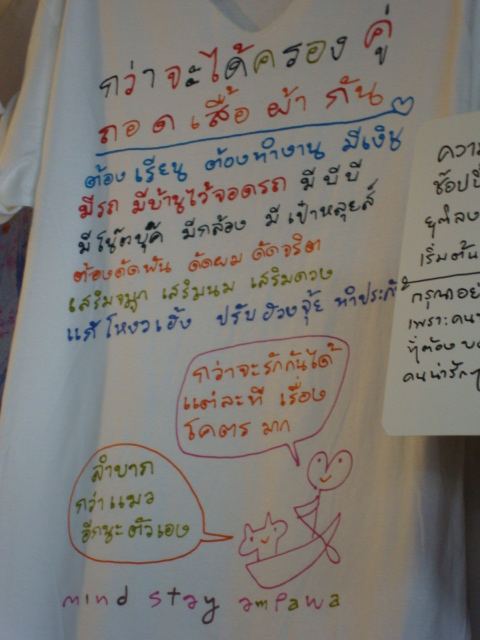 กว่าจะได้ครองคู่
ถอดเสื้อผ้ากัน
ต้องเรียน ต้องทำงาน มีเงิน
มีรถ มีบ้านไว้จอดรถ มีบีบี
มีโน๊ตบุ๊ค มีกล้อง มีเป๋าหลุยส์
ต้องดัดฟัน ดัดผม ดัดจริต
เสริมจมูก เสริมนม เสริมดวง
แก้โหงวเฮ้ง ปรับฮวงจุ้ย ทำประกัน
กว่าจะรักกันได้
แต่ละที เรื่อง
โคตรมาก
ลำบาก
กว่าแมว
อีกนะตัวเอง
mind stay ampawa
ความ
ช๊อปปิ้
เริ่มต้น
กรุณาอย่
เพราะคน
ที่ต้อง
คนน่ารัก